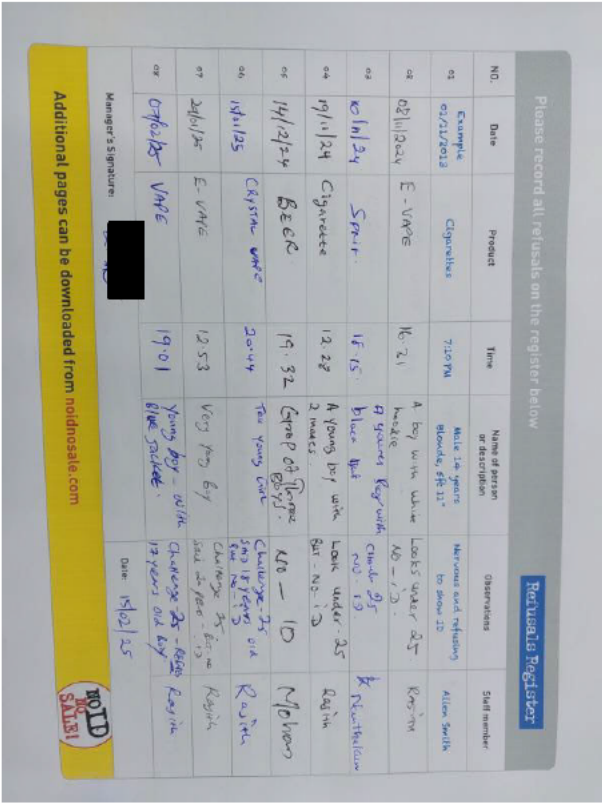 Refusals Register
Please record all refusals on the register below
NO. Date Product Time Name of person or description Observations Staff member
01 Example 02/11/2013 Cigarettes 7:10 PM Male 14 years Blonde, 5ft 11" Nervous and refusing to show ID Allen Smith
02 08/11/2024 E-VAPE 16.21 A boy with white hoodie Looks under 25 NO - iD.
03 10/11/24 18.15 NO iD.
04 19/11/24 Cigarette 12.28 A young boy with 2 mates. Look under 25 BUT - NO - iD Rajith
05 14/12/24 BEER 19.32 Group of Three Boys. NO - ID Mohan
06 15/01/25 CRYSTAL VAPE 20.44 Two Young Challenge 25 said 18 years old But no - iD Rajith
07 29/01/25 E-VAPE 12.53 Very young boy Challenge 25 Rajith
08 07/02/25 VAPE 19.01 Young boy - with Blue Jacket. Challenge 25 - 17 years old Boy Rajith
Manager's Signature: Date: 15/02/25
Additional pages can be downloaded from noidnosale.com
NO ID
NO
SALE!